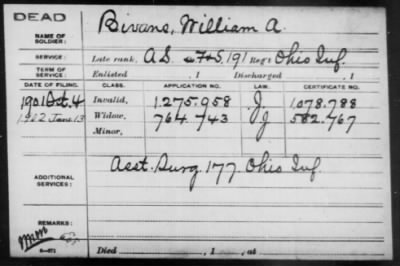 DEAD
NAME OF SOLDIER: Bivans, William A.
SERVICE: Late rank, A.S. F+S, 191 Reg't Ohio Inf.
TERM OF SERVICE: Enlisted , 1 Discharged , 1
DATE OF FILING. CLASS. APPLICATION NO. LAW. CERTIFICATE NO.
1901 Oct. 4 Invalid, 1.275.958 J. 1.078.788
1912 Jan. 13 Widow, 764.743 J 582.767
Minor,
ADDITIONAL SERVICES: Asst. Surg. 177. Ohio Inf.
REMARKS:
Died , 1 , at